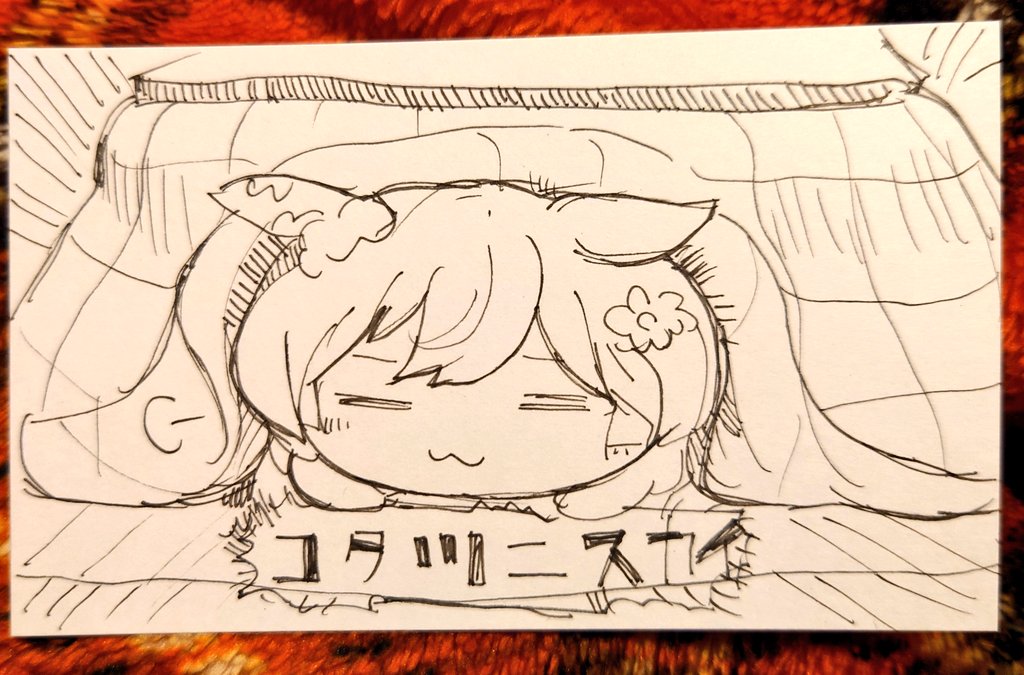 コタツニスカイ